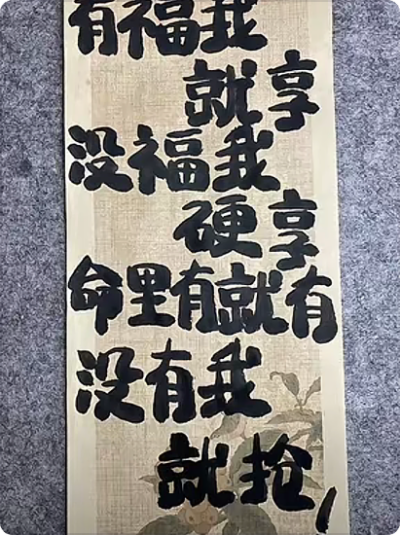 有福我
就享
没福我
硬享
命里有就有
没有我
就抢,